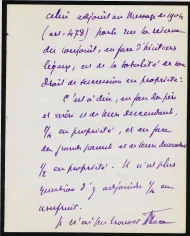 celui adjoint au Message de 1904
(art. 478) porte sur la réserve
du conjoint, en face d'héritiers
légaux, et de la totalité de son
droit de succession en propriété.
C'est à dire, en face des père
et mère et de leurs descendants,
1/4 en propriété, et en face
des grands parents et de leurs descendants
1/2 en propriété. Il n'est plus
question d'y adjoindre 1/4 en
usufruit.
Je n'ai pu trouver